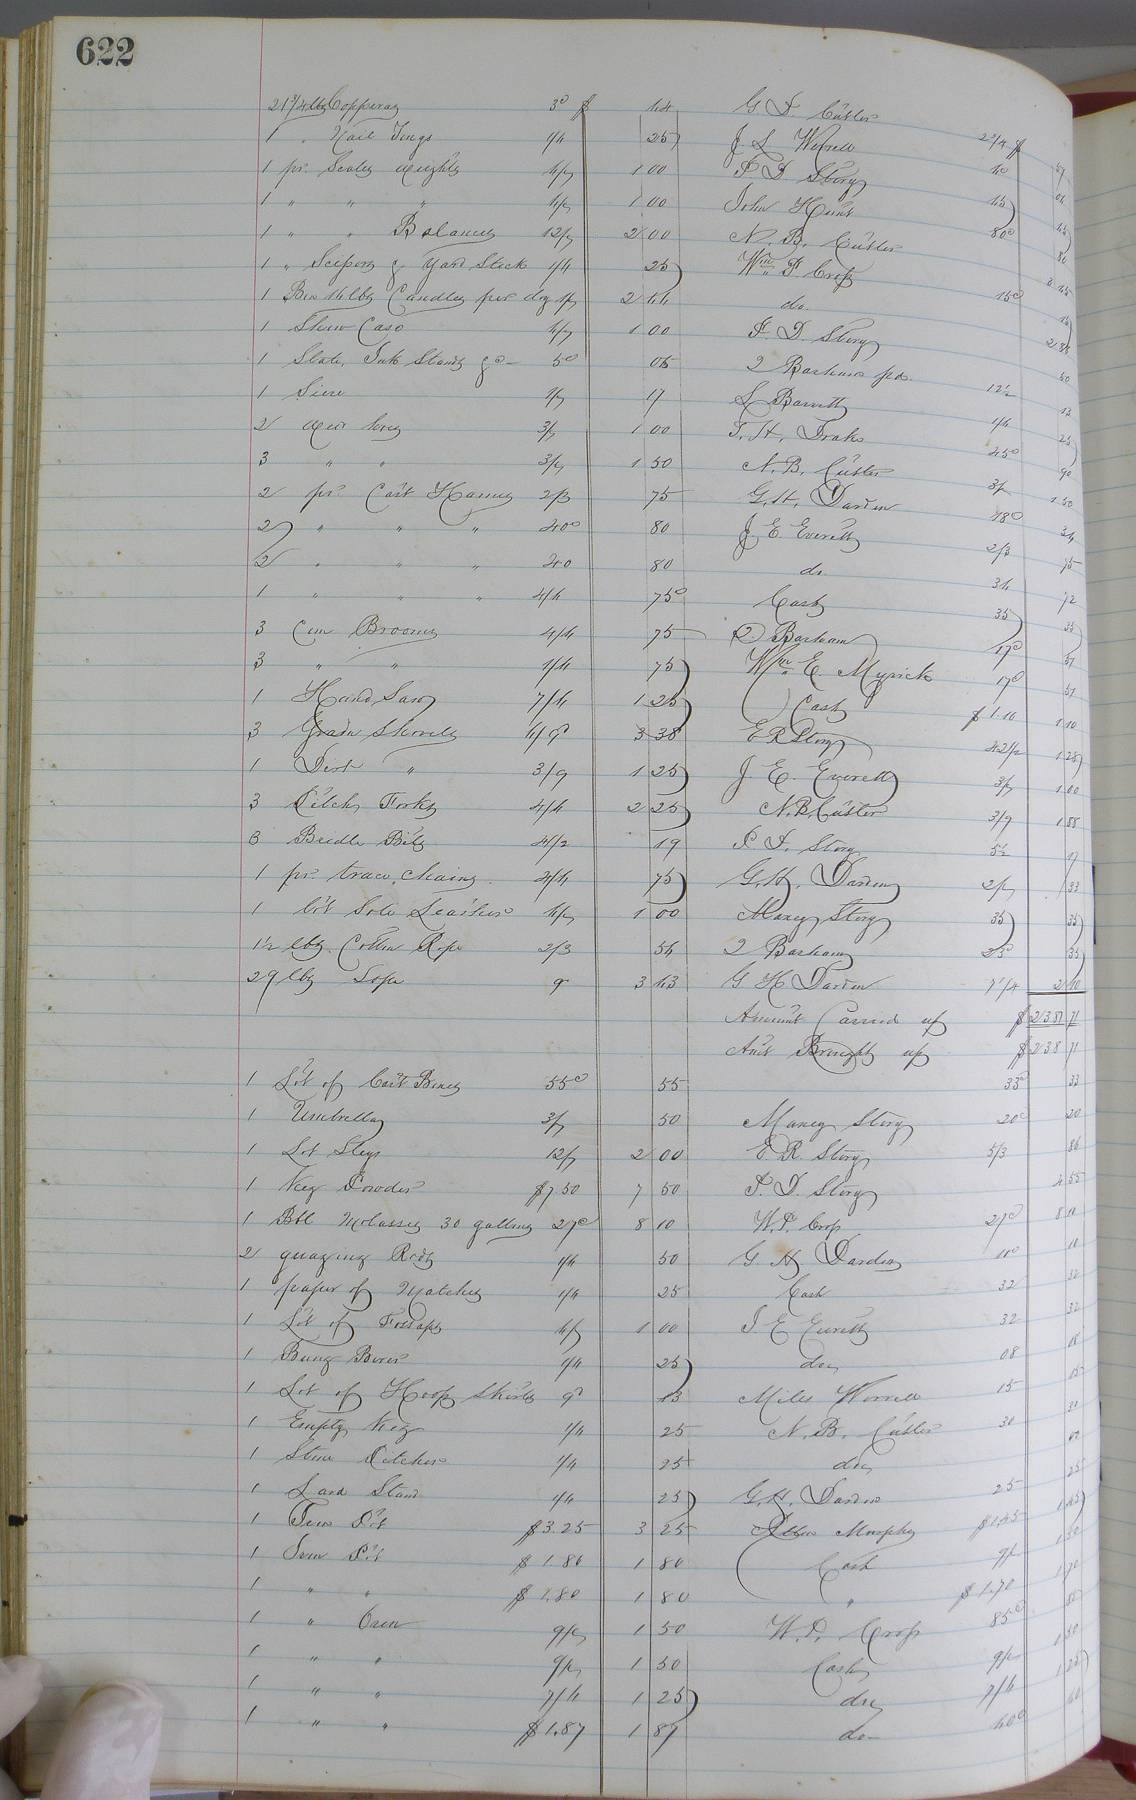 622
21 3/4 lbs Copperas 3c $ 64 G. D. Cutler 2 3/4 $
1 " Nail Tongs 1/6 25 J. L. Worrell 4c
1 pr. Scales Weights 6/ 1 00 P. D. Story 45
1 " " " 6/ 1 00 John Hunt 80c
1 " " Balances 12/ 2 00 N. B. Cutler
1 " & Yard Stick 1/6 25 Wm. P. Crop 15c
1 Box 16 lbs Candles per 2 44 do.
1 Show Case 6/ 1 00 P. D. Story
1 Slate, Ink Stands &c 5c 05 Q Barham 12 1/2
1 Sieve 1/ 17 L Barrett 1/6
2 3/ 1 00 T. H. Drake 45c 90
3 " " 3/ 1 50 N. B. Cutler 3/ 1 50
2 pr. Cart Hames 2/3 75 G. H. Darden
2 " " " 40c 80 J. E. Everett 2/3 75
2 " " " 40 80 do. 36 72
1 " " " 4/6 75c Cash 35 35
3 Corn Brooms 4/6 75 Q Barham 17c 51
3 " " 1/6 75 Wm. E. Myrick 17c 51
1 Hand Saw 7/6 1 25 Cash $1.10 1 10
3 Grain Shovels 6/9 3 38 E R Story 42 1/2 1 28
1 Dirt " 3/9 1 25 J. E. Everett 3/ 1 00
3 Pitch Forks 4/6 2 25 N. B. Cutler 3/9 1 88
3 Bridle Bits 19 P. D. Story 5 1/2 17
1 pr. trace chains 4/6 75 G. H. Darden 2/ 33
1 bit Sole Leather 6/ 1 00 Maney Story 35 35
1 1/2 lbs Cotton Rope 2/3 54 Q Barham 23c 35
29 lbs Sope 9 3 43 G H Darden 7 1/4 2 10
Amount Carried up $238 71
Amt Brought up $238 71
1 Lot of Cart Boxes 55c 55 33c 33
1 Umbrella 3/ 50 Maney Story 20c 20
1 Lot Slays 12/ 2 00 E. R. Story 5/3 86
1 Keg Powder $7.50 7 50 P. D. Story 4 55
1 Bbl Molasses 30 gallons 27c 8 10 W. P. Crop 27c 8 10
2 guaging Rods 1/6 50 G. H. Darden 10c 10
1 paper of Matches 1/6 25 Cash 32 32
1 Lot of 6/ 1 00 J E Everett 32 32
1 Bung Borer 1/6 25 do 08 08
1 Lot of Hoop Skirts 9c 13 Miles Worrell 15 15
1 Empty Keg 1/6 25 N. B. Cutler 30 30
1 Stone Pitcher 1/6 25 do
1 Lard Stand 1/6 25 G. H. Darden 25 25
1 Iron Pot $3.25 3 25 Murphy $1.45 1 45
1 Iron Pot $1.80 1 80 Cash 9/ 1 50
1 " " $1.80 1 80 " $1.70 1 70
1 " Oven 9/ 1 50 W. P. Crop 85c 85
1 " " 9/ 1 50 Cash 9/ 1 50
1 " " 7/6 1 25 do 7/6 1 25
1 " " $1.87 1 87 do 60c 60